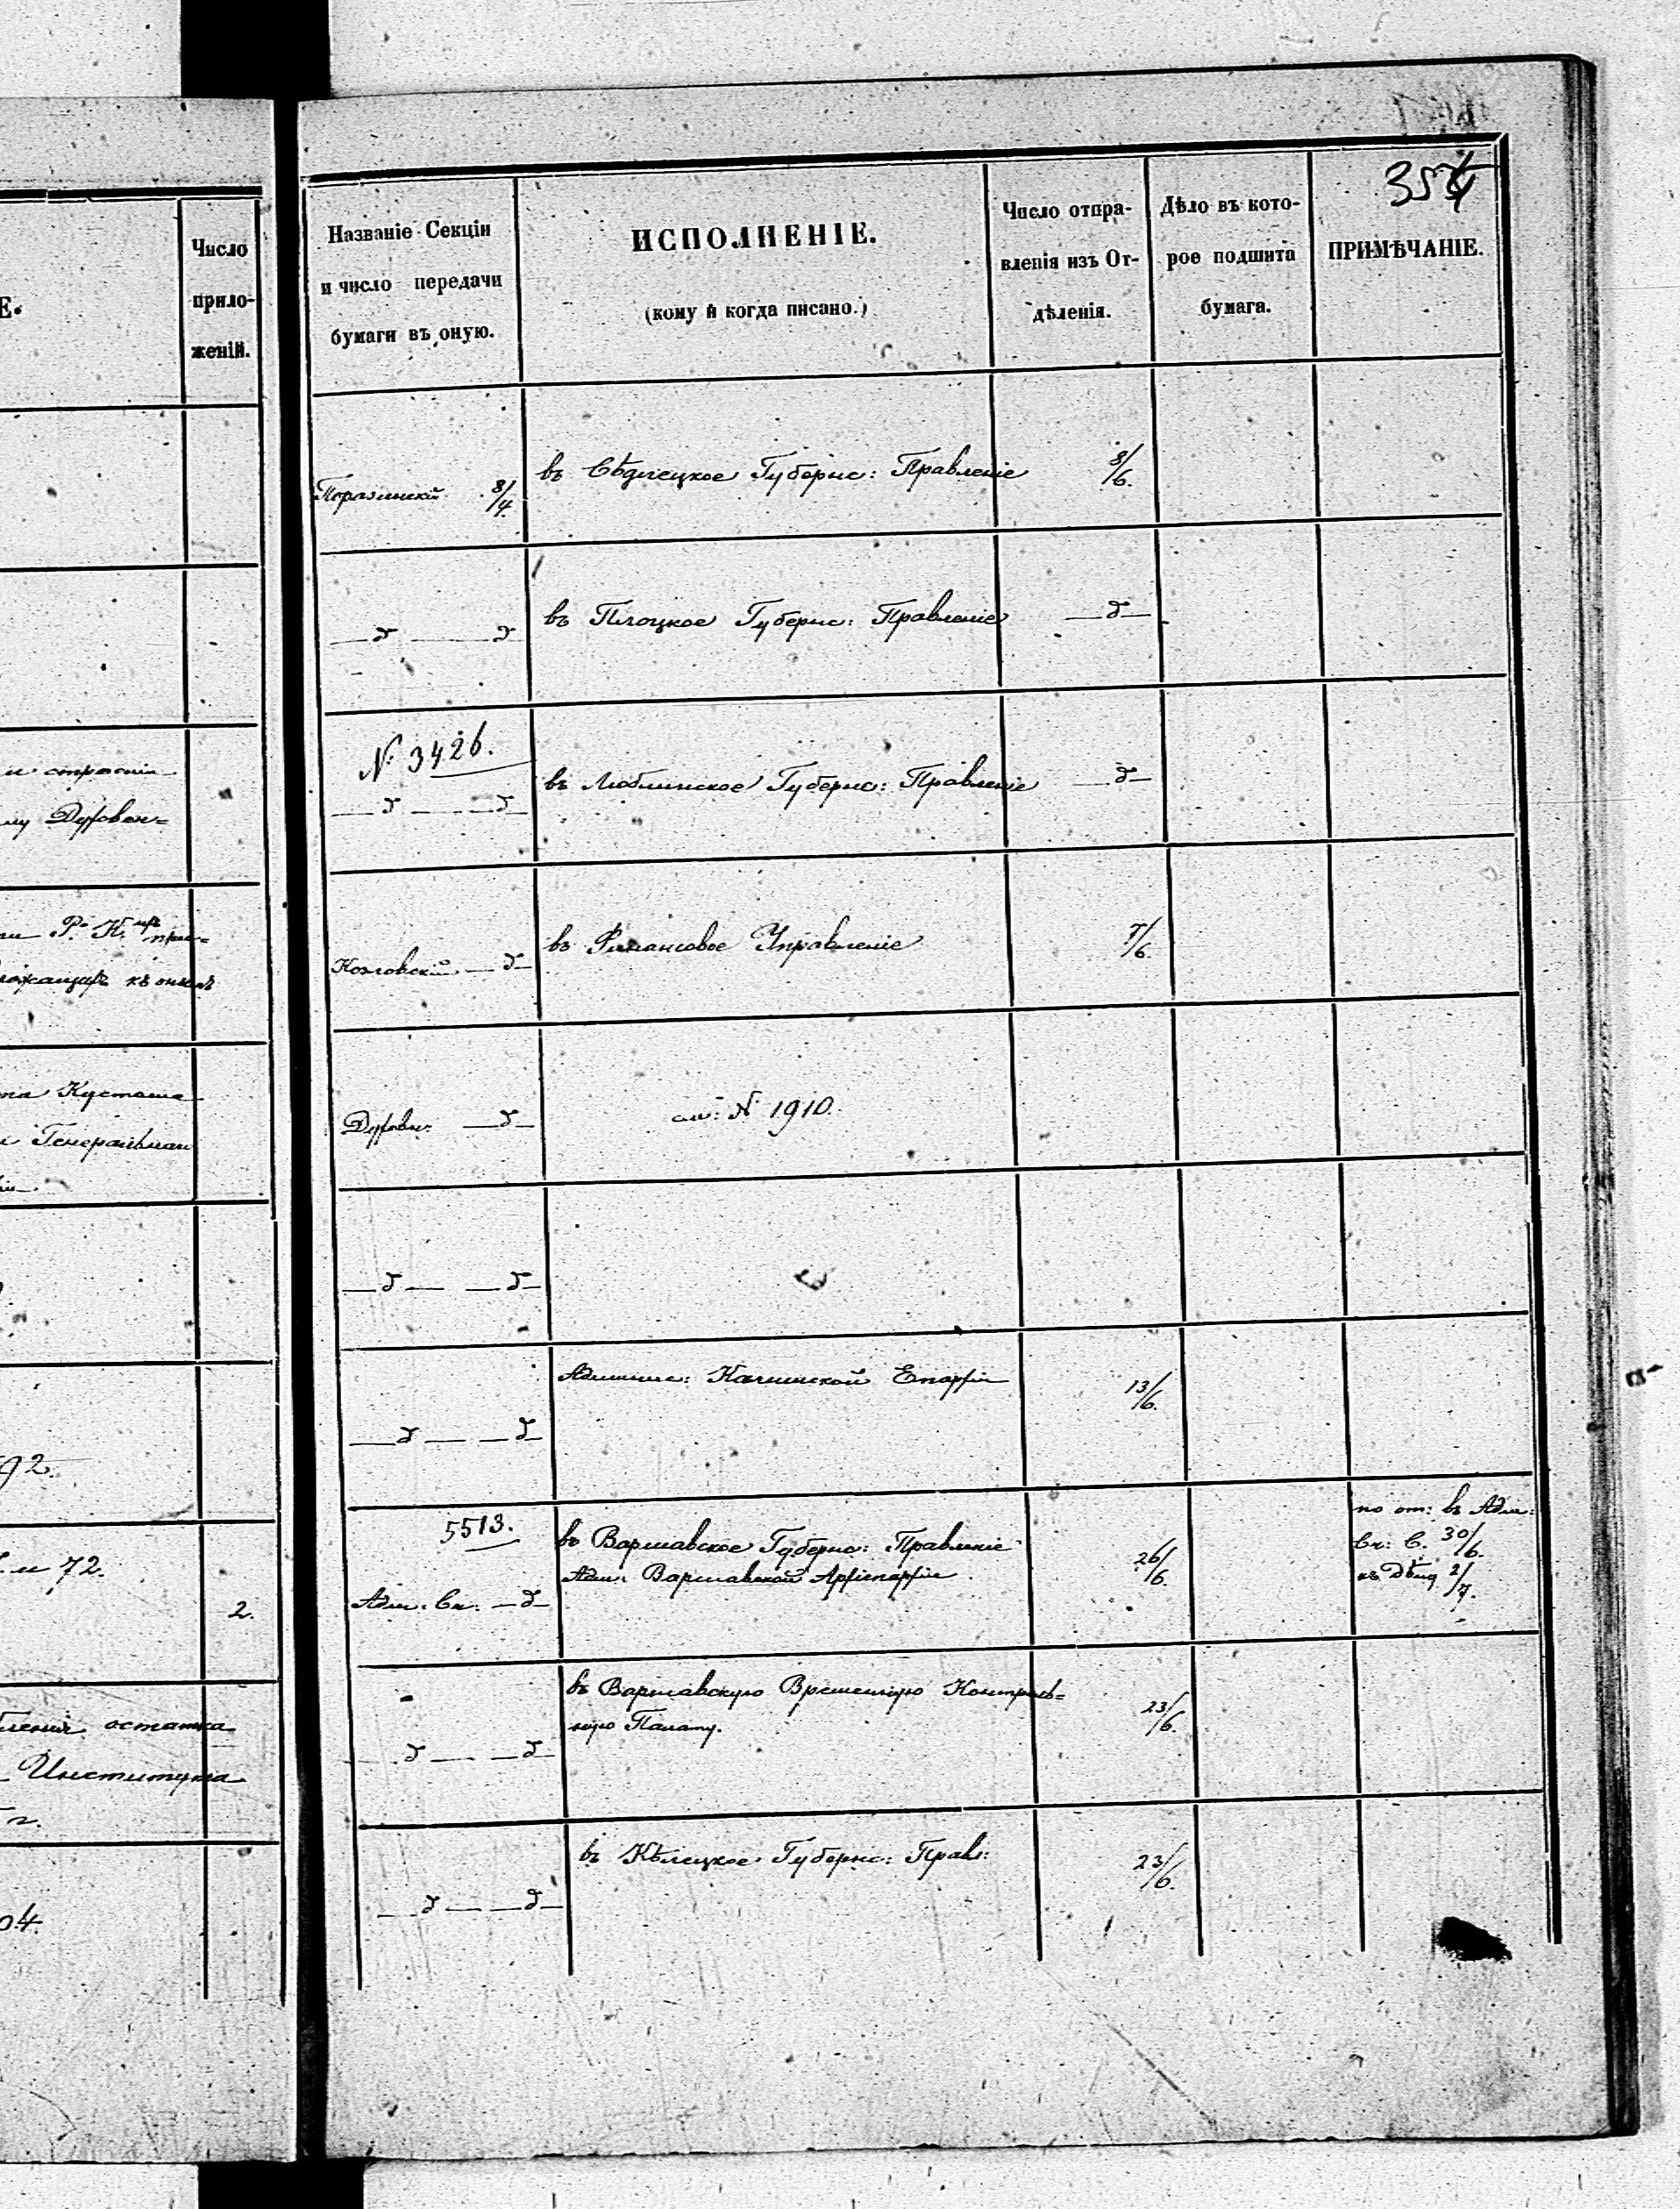 354
Е.
Число
прило-
женій.
Названіе Секціи
и число передачи
бумаги въ оную.
ИСПОЛНЕНІЕ.
(кому и когда писано.)
Число отпра-
вленія изъ От-
дѣленія.
Дѣло въ кото-
рое подшита
бумага.
ПРИМѢЧАНІЕ.
8/4.
въ Сѣдлецкое Губернс: Правленіе
8/6.
—д— —д
въ Плоцкое Губернс: Правленіе
—д—
и строенія
му Духовен=
№ 3426.
—д— —д—
въ Люблинское Губернс: Правленіе
—д—
Р. К.
къ онымъ
Козловскій —д—
въ Финансовое Управленіе
7/6.
Кустоша
Генеральнаго
Духовн: —д—
см: № 1910.
—д— —д—
92.
—д— —д—
Админис: Калишской Епархіи
13/6.
и 72.
2.
5513.
Адм: Сл: —д—
въ Варшавское Губернс: Правленіе
Адм: Варшавской Архіепархіи
26/6.
по от: въ Адм:
Сл: С. 30/6.
къ дѣлу 2/7.
остатка
Института
г.
—д— —д—
въ Варшавскую Временную Контроль=
ную Палату.
23/6.
04.
—д— —д—
въ Кѣлецкое Губернс: Прав:
23/6.